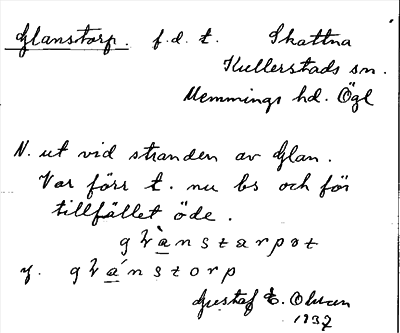 Glanstorp. f. d. t. Skattna
Kullerstads sn.
Memmings hd. Ögl
N. ut vid stranden av Glan.
Var förr t. nu bs och för
tillfället öde.
glànstarpət
y. glánstorp
Gustaf E. Olsson
1937